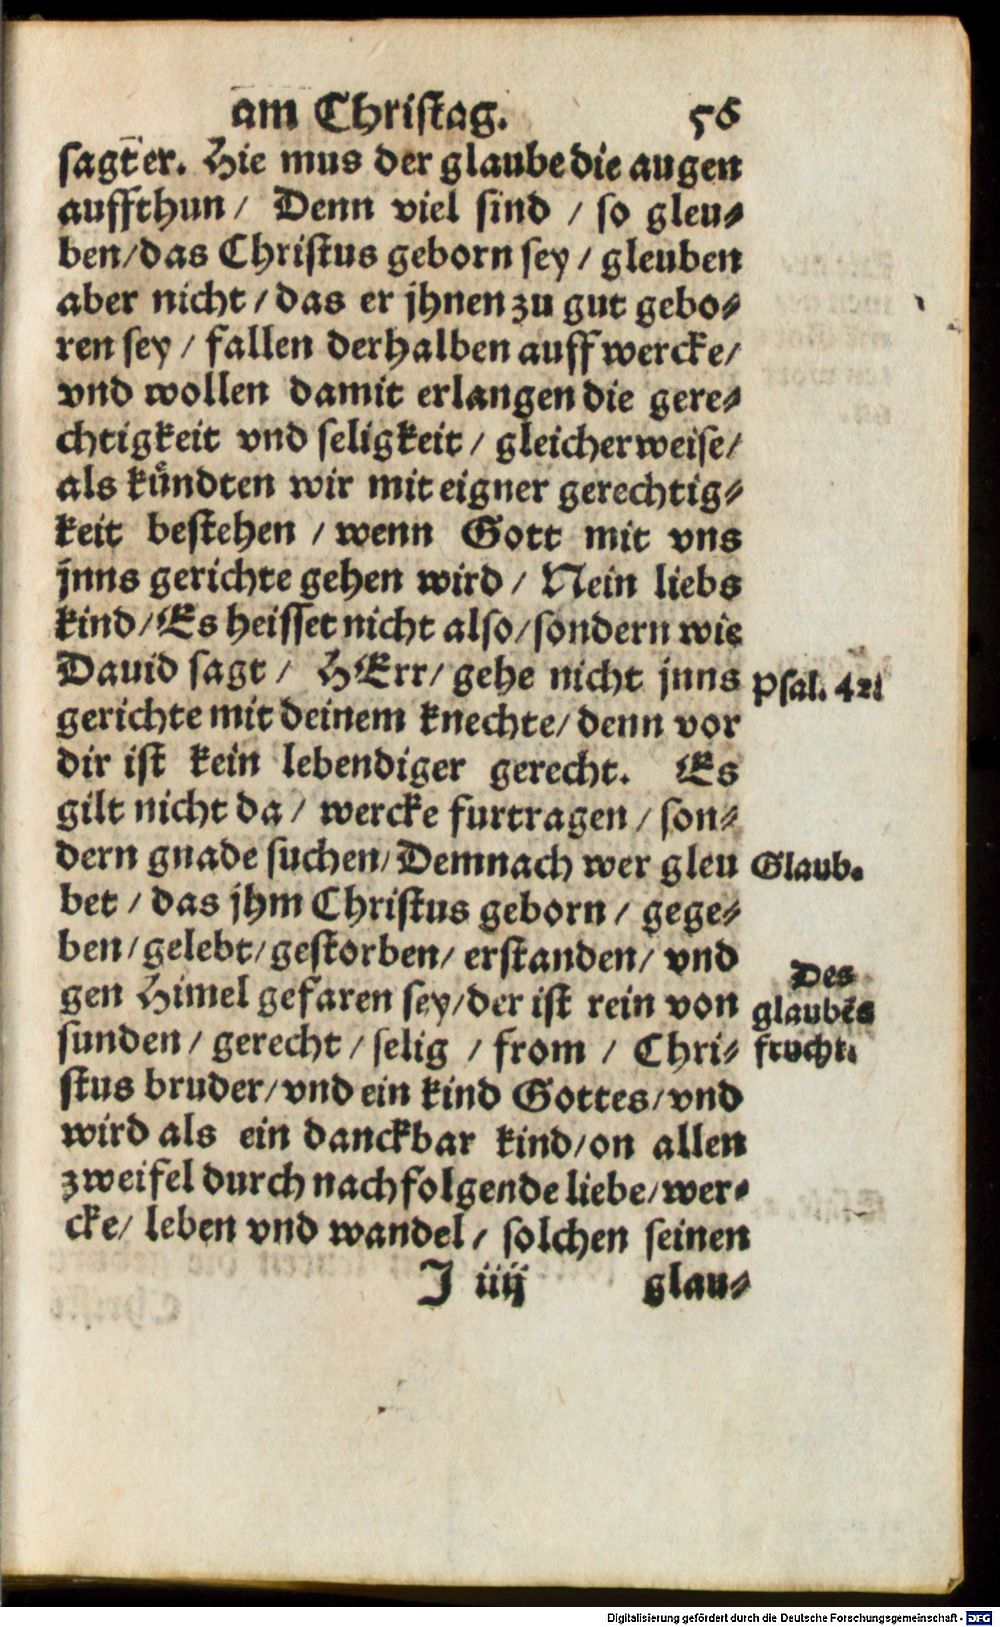 am Christag. 56
sagt er. Hie mus der glaube die augen
auffthun / Denn viel sind / so gleu-
ben / das Christus geborn sey / gleuben
aber nicht / das er jhnen zu gut gebo-
ren sey / fallen derhalben auff wercke /
vnd wollen damit erlangen die gere-
chtigkeit vnd seligkeit / gleicher weise /
als kuͤndten wir mit eigner gerechtig-
keit bestehen / wenn Gott mit vns
jnns gerichte gehen wird / Nein liebs
kind / Es heisset nicht also / sondern wie
Dauid sagt / HErr / gehe nicht jnns
Psal. 421
gerichte mit deinem knechte / denn vor
dir ist kein lebendiger gerecht. Es
gilt nicht da / wercke furtragen / son-
dern gnade suchen / Demnach wer gleu
Glaub.
bet / das jhm Christus geborn / gege-
ben / gelebt / gestorben / erstanden / vnd
gen Himel gefaren sey / der ist rein von
Des
glaubẽs
frucht.
sunden / gerecht / selig / from / Chri-
stus bruder / vnd ein kind Gottes / vnd
wird als ein danckbar kind / on allen
zweifel durch nachfolgende liebe / wer-
cke / leben vnd wandel / solchen seinen
J iiij glau-
Digitalisierung gefördert durch die Deutsche Forschungsgemeinschaft - DFG